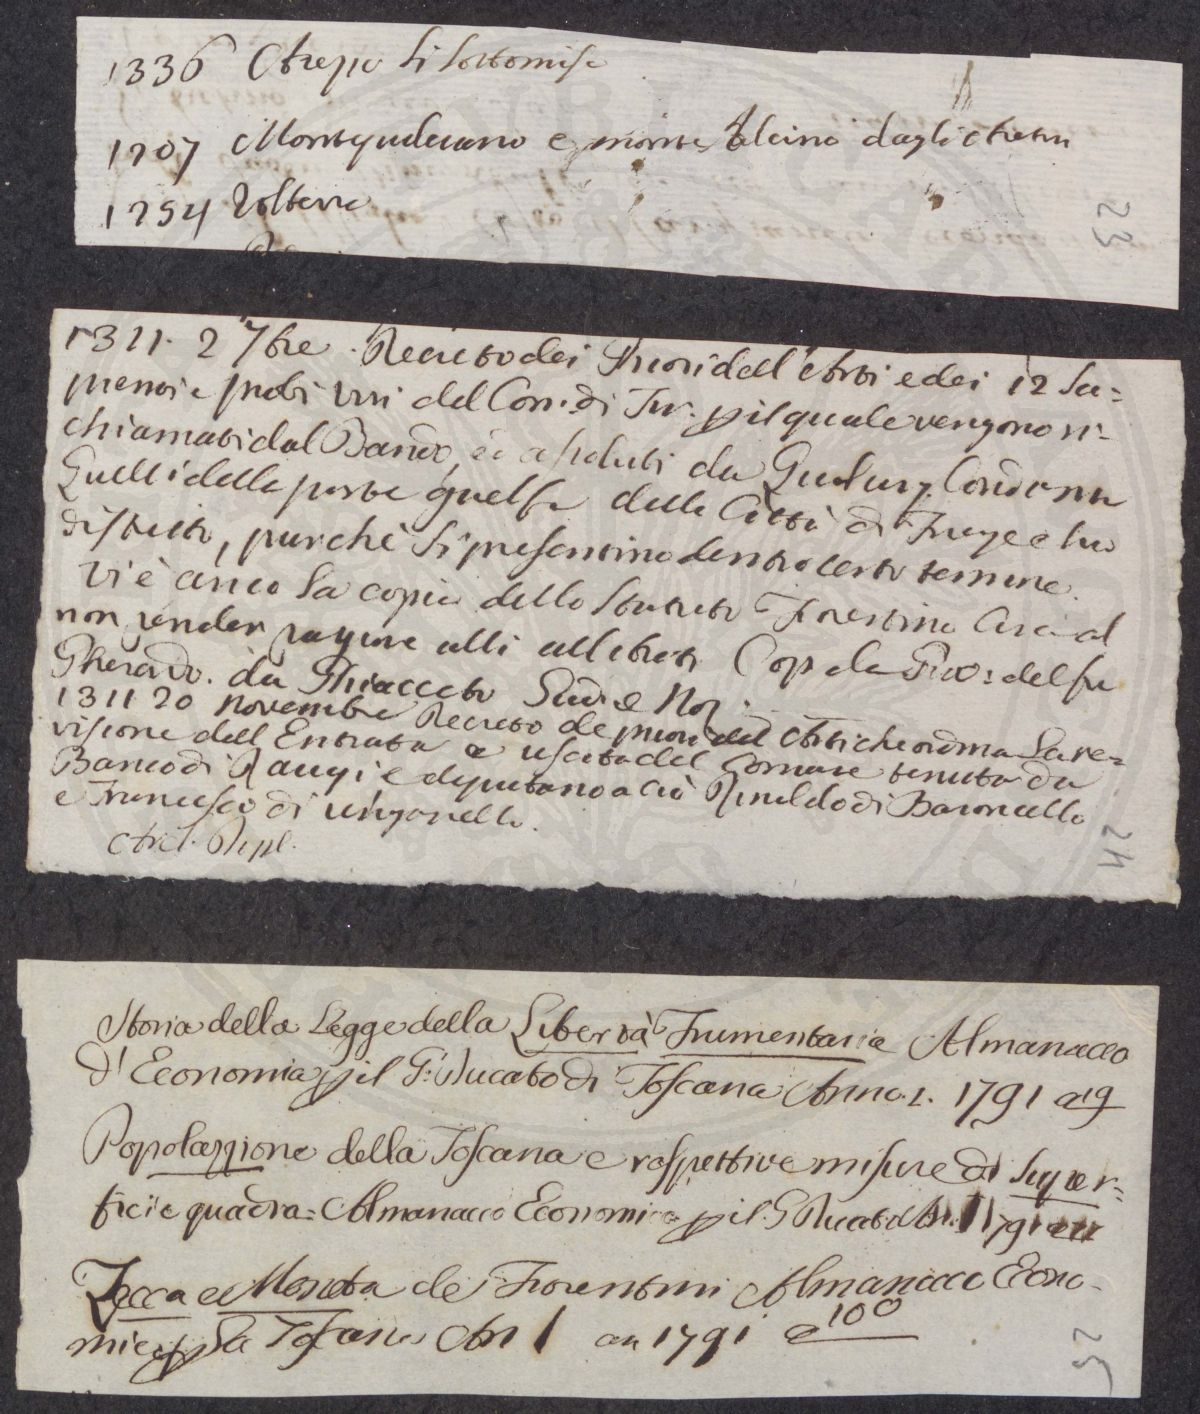 1336 Arezzo si sottomise
1207 Montepulciano e monte Alcino dagli Aretin
1254 Volterra
23
1311. 2 7bre. Decreto dei Priori dell'Arti e dei 12 Sa=
pienti e probi viri del Com. di Fir. p il quale vengono ri=
chiamati dal Bando, ed assoluti da Qualunq. Condanna
Quelli della parte guelfa della Città di Firenze e suo
distretto, purchè si presentino dentro certo termine.
Vi è anco la copia dello Statuto Fiorentino circa al
non render ragione alli allibrati Cop da Gio: del fu
Gherardo da Ghiacceto Giud e Not.
1311 20 Novembre Decreto de priori dell Arti che ordina la re=
visione dell Entrata e uscita del Comune tenuta da
Banco di Raugi e deputano a ciò Rinaldo di Baroncello
e Francesco di
Arch. Dipl.
24
Storia della Legge della Libertà Frumentaria Almanacco
d'Economia p il G: Ducato di Toscana Anno 1. 1791 a 19
Popolazzione della Toscana e respettive misure di super=
ficie quadra = Almanacco Economico p il G Ducato An. 1 1791
Zecca e Moneta de Fiorentini Almanacco Econo-
mico p la Toscana An 1 an 1791 a 100
25